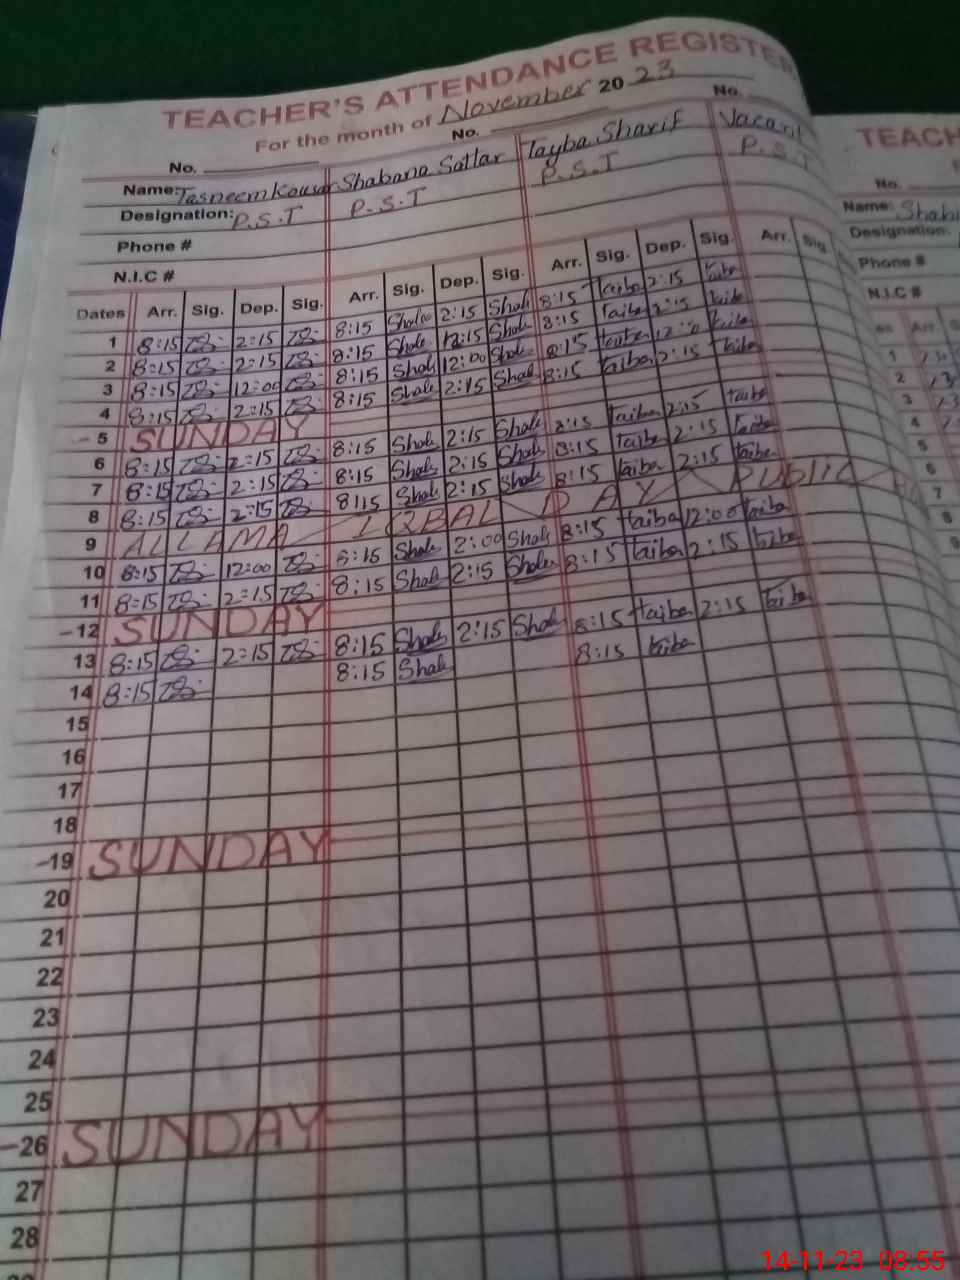 TEACHER'S ATTENDANCE REGISTE
For the month of November 20 23
No. No. No.
Name: Tasneem Kousar Shabana Sattar Tayba Sharif Vacant
Designation: P.S.T P.S.T P.S.T P.S.T
Phone #
N.I.C #
Dates Arr. Sig. Dep. Sig. Arr. Sig. Dep. Sig. Arr. Sig. Dep. Sig. Arr. Sig
1 8:15 2:15 8:15 Shaba 2:15 Shab 8:15 taiba 2:15 taiba
2 8:15 2:15 8:15 Shab 12:15 Shab 8:15 taiba 2:15 taiba
3 8:15 12:00 8:15 Shab 12:00 Shab 8:15 taiba 12:00 taiba
4 8:15 2:15 8:15 Shab 2:15 Shab 8:15 taiba 2:15 taiba
-5 SUNDAY
6 8:15 2:15 8:15 Shab 2:15 Shab 8:15 taiba 2:15 taiba
7 8:15 2:15 8:15 Shab 2:15 Shab 8:15 taiba 2:15 taiba
8 8:15 2:15 8:15 Shab 2:15 Shab 8:15 taiba 2:15 taiba
9 ALLAMA IQBAL DAY PUBLIC
10 8:15 12:00 8:15 Shab 2:00 Shab 8:15 taiba 12:00 taiba
11 8:15 2:15 8:15 Shab 2:15 Shab 8:15 taiba 2:15 taiba
-12 SUNDAY
13 8:15 2:15 8:15 Shab 2:15 Shab 8:15 taiba 2:15 taiba
14 8:15 8:15 Shab 8:15 taiba
15
16
17
18
-19 SUNDAY
20
21
22
23
24
25
-26 SUNDAY
27
28
TEACH
No.
Name: Shab
Designation:
Phone #
N.I.C #
es Arr.
1
2
3
4
5
6
7
8
9
14-11-23 08:55